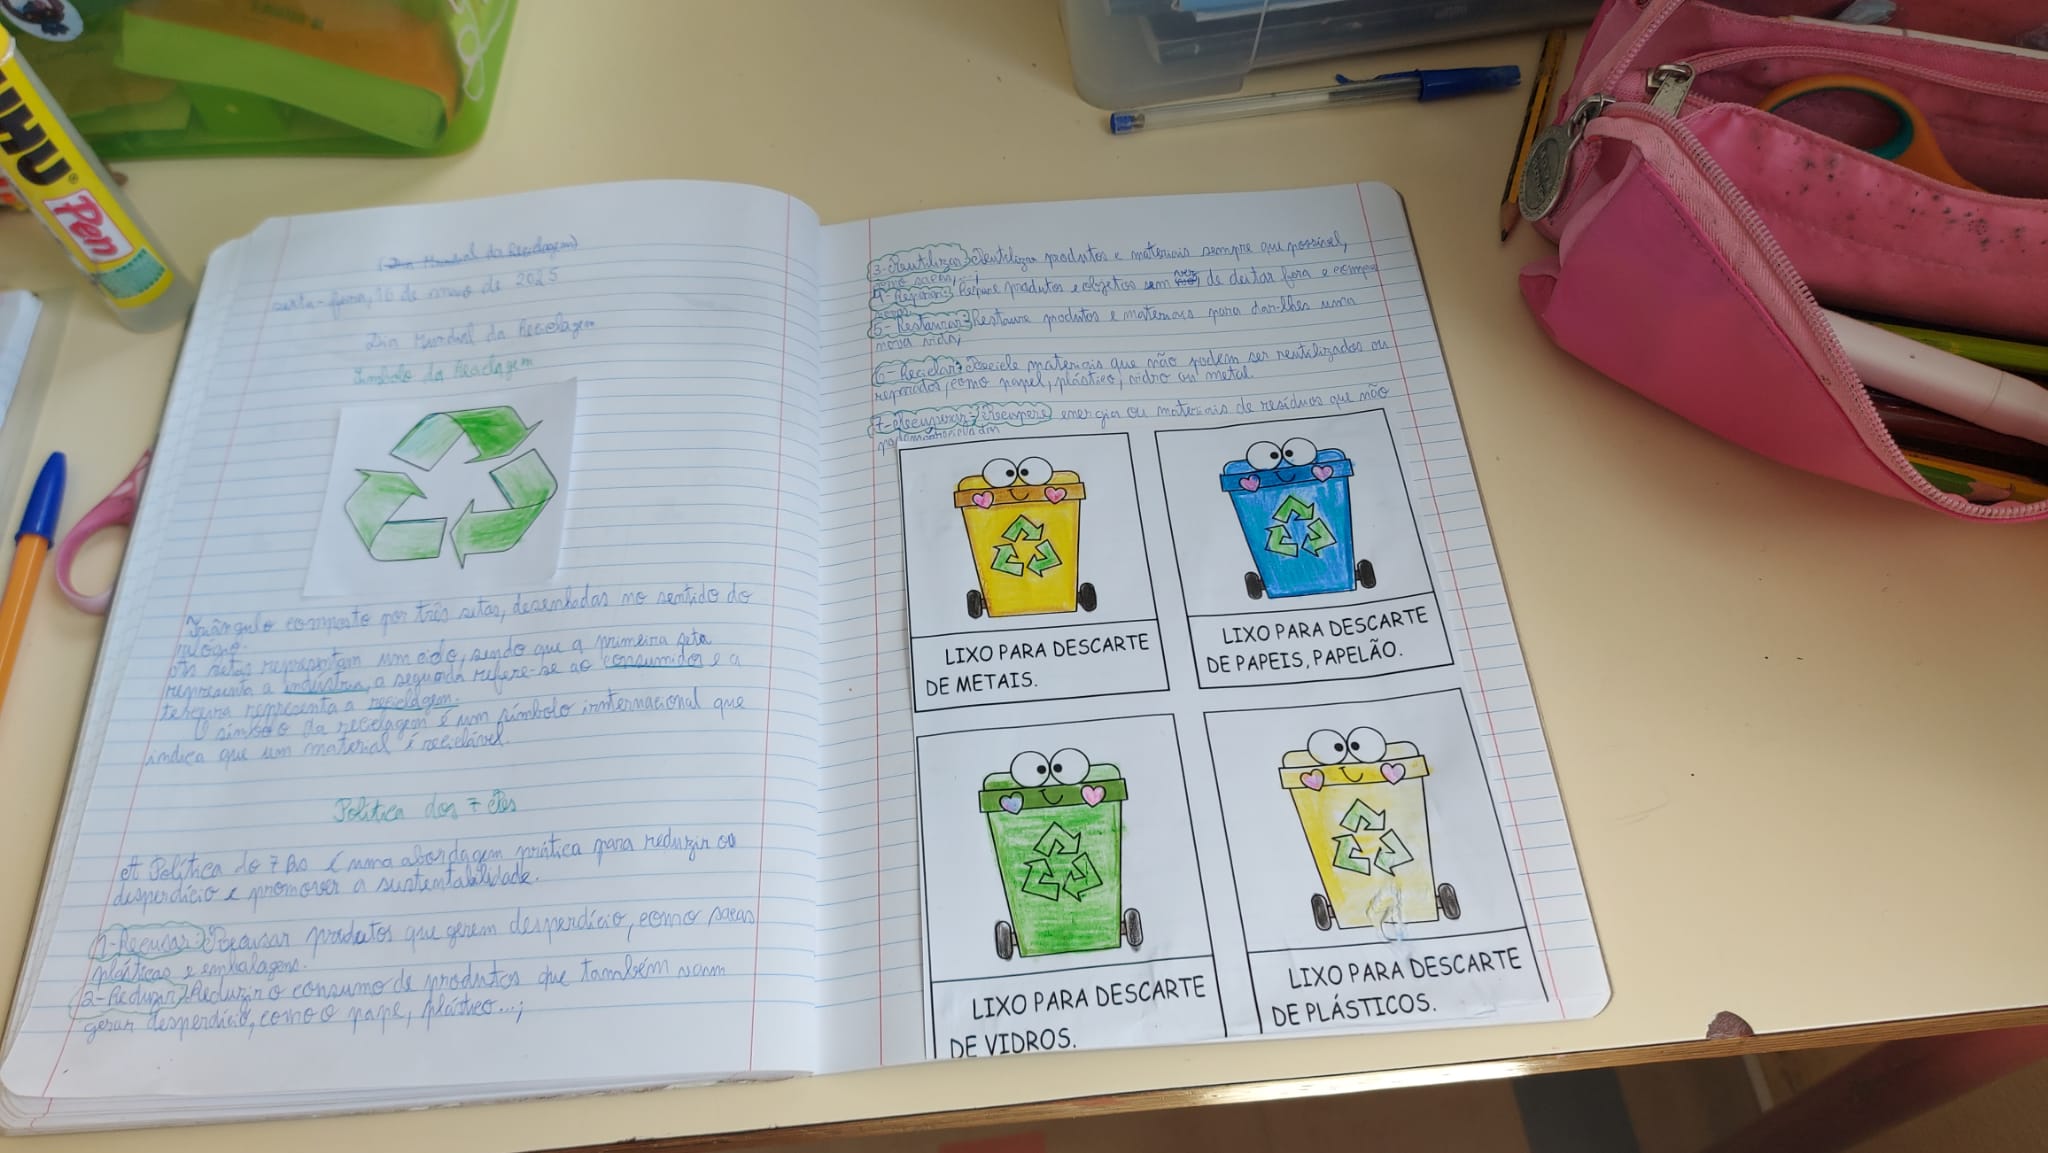 UHU
Pen
(Dia Mundial da Reciclagem)
sexta-feira, 16 de maio de 2025
Dia Mundial da Reciclagem
Símbolo da Reciclagem
Triângulo composto por três setas, desenhadas no sentido do
relógio.
As setas representam um ciclo, sendo que a primeira seta
representa a indústria, a segunda refere-se ao consumidor e a
terceira representa a reciclagem.
O símbolo da reciclagem é um símbolo internacional que
indica que um material é reciclável.
Política dos 7 étes
A Política do 7 Rs é uma abordagem prática para reduzir o
desperdício e promover a sustentabilidade.
1-Recusar: Recusar produtos que gerem desperdício, como sacas
plásticas e embalagens.
2-Reduzir: Reduzir o consumo de produtos que também vam
gerar desperdício, como o pape, plástico...;
3-Reutilizar: Reutilizar produtos e materiais sempre que possível,
como sacas, ...;
4-Reparar: Repare produtos e objetos em vez de deitar fora e comprar
novos;
5-Restaurar: Restaure produtos e materiais para dar-lhes uma
nova vida;
6-Reciclar: Recicle materiais que não podem ser reutilizados ou
reparados, como papel, plástico, vidro ou metal.
7-Recuperar: Recupere energia ou materiais de resíduos que não
LIXO PARA DESCARTE
DE METAIS.
LIXO PARA DESCARTE
DE PAPEIS, PAPELÃO.
LIXO PARA DESCARTE
DE VIDROS.
LIXO PARA DESCARTE
DE PLÁSTICOS.